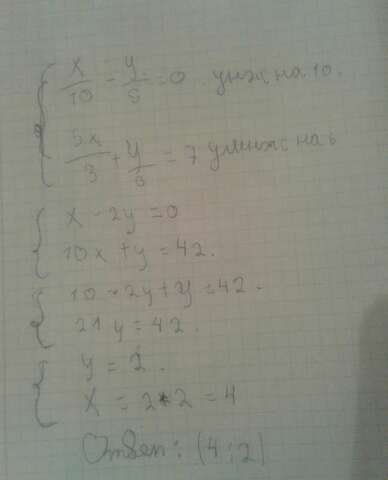 x/10 - y/5 = 0 умнж на 10.
5x/3 + y/6 = 7 умнж на 6
x - 2y = 0
10x + y = 42.
10 · 2y + y = 42.
21y = 42.
y = 2.
x = 2*2 = 4
Ответ: (4;2)